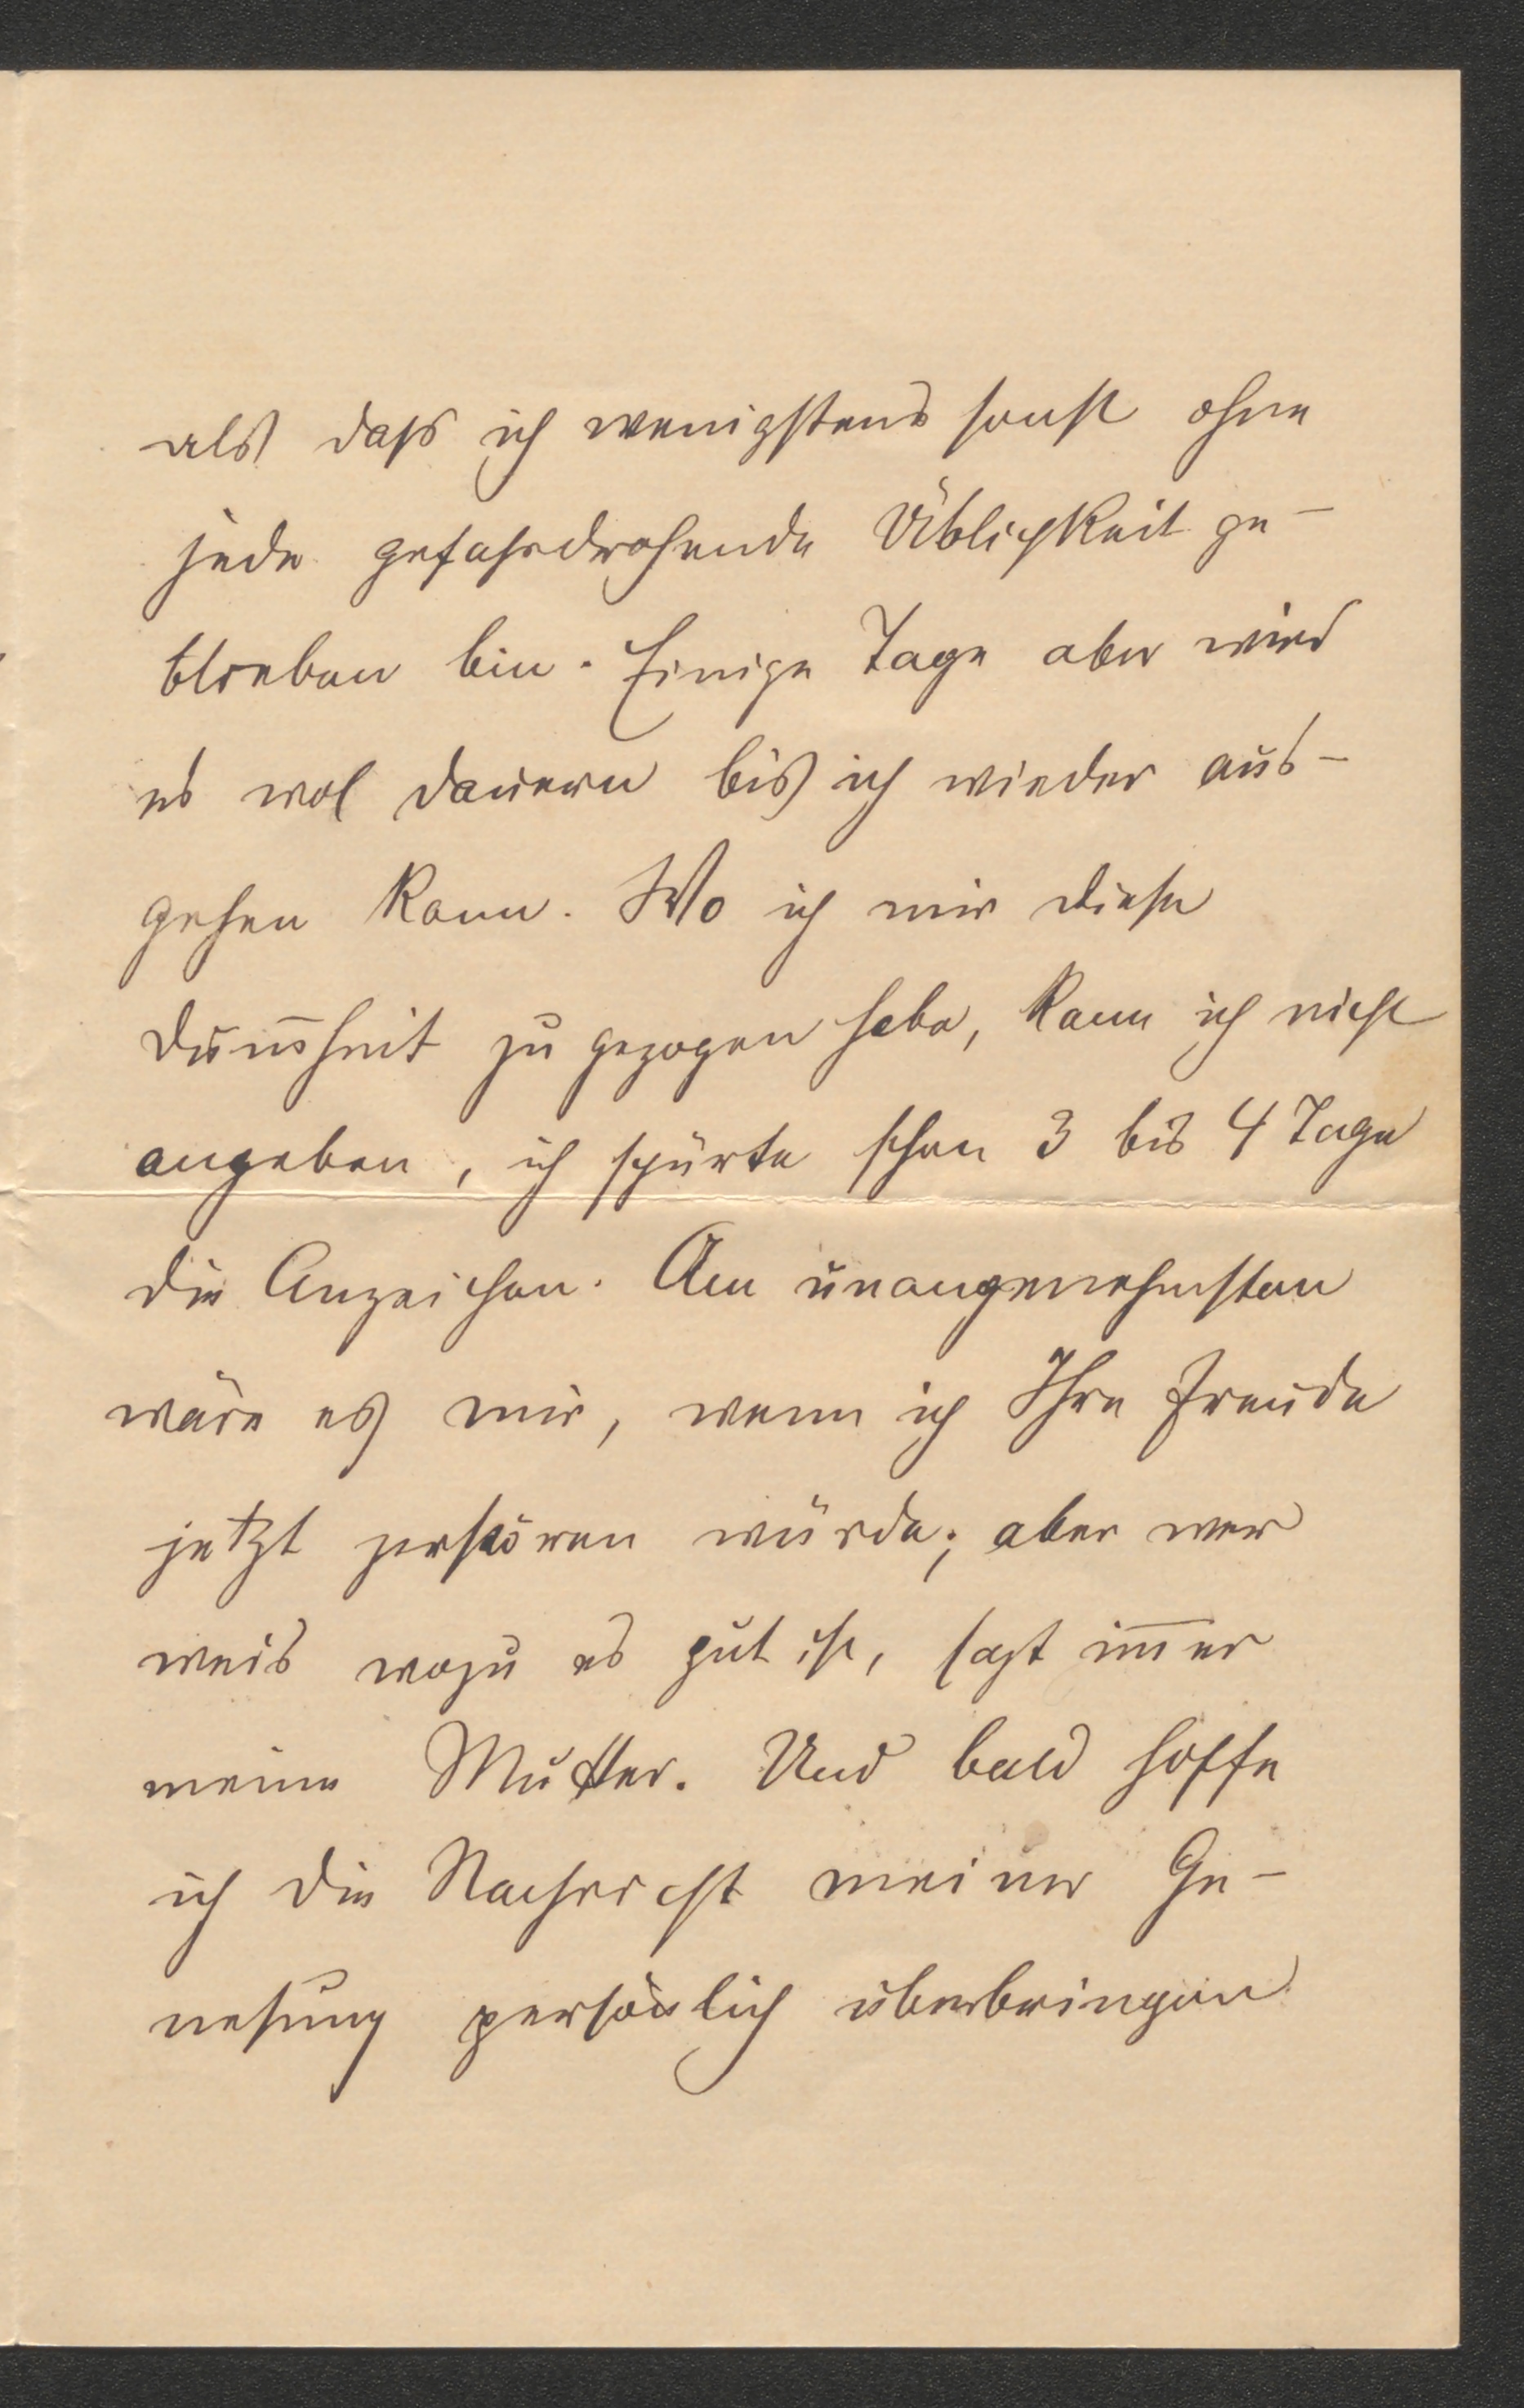 als daß ich wenigstens sonst ohne
jede gefahrdrohende Üblichkeit ge-
blieben bin. Einige Tage aber wird
es wol dauern bis ich wieder aus-
gehen kann. Wo ich mir diese
Dum̄heit zu gezogen habe, kann ich nicht
angeben, ich spürte schon 3 bis 4 Tage
die Anzeichen. Am unangenehmsten
wäre es mir, wenn ich Ihre Freude
jetzt zerstören würde; aber wer
weis wozu es gut ist, sagt im̄er
meine Mutter. Und bald hoffe
ich die Nachricht meiner Ge-
nesung persönlich überbringen